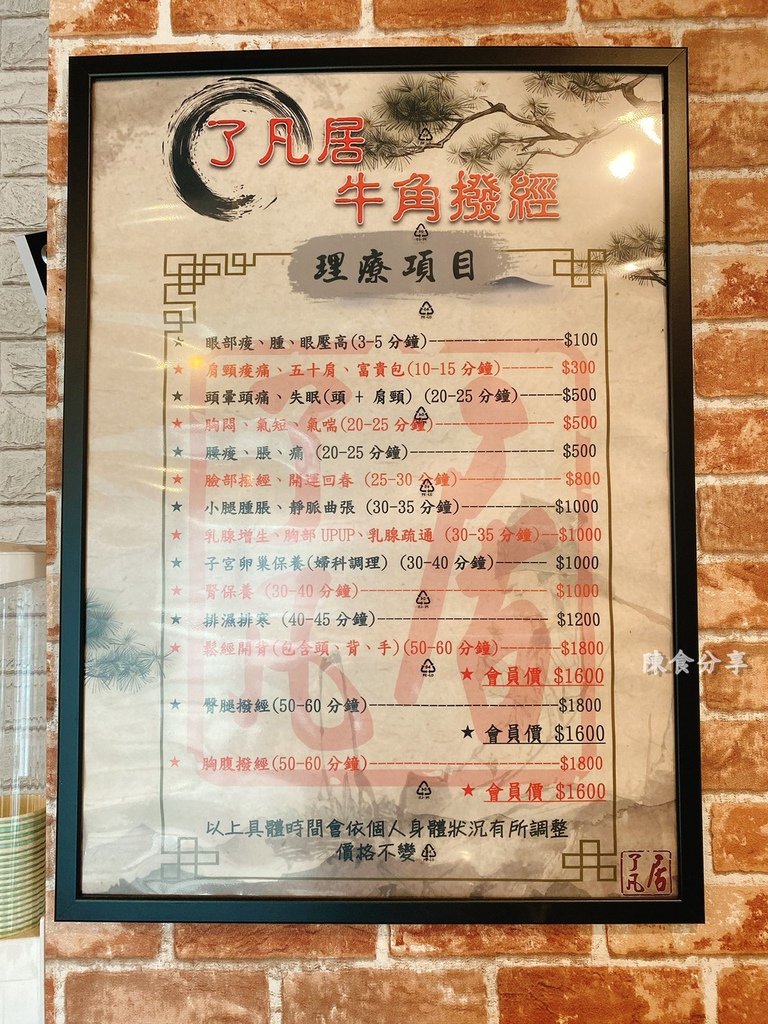 了凡居
牛角撥經
理療項目
★ 眼部痠、腫、眼壓高(3-5分鐘)-----------------$100
★ 肩頸痠痛、五十肩、富貴包(10-15分鐘)------- $300
★ 頭暈頭痛、失眠(頭 + 肩頸) (20-25分鐘)-----$500
★ 胸悶、氣短、氣喘(20-25分鐘)--------------- $500
★ 腰痠、脹、痛 (20-25分鐘)------------------- $500
★ 臉部撥經、開運回春 (25-30分鐘)-------------$800
★ 小腿腫脹、靜脈曲張 (30-35分鐘)------------$1000
★ 乳腺增生、胸部UPUP、乳腺疏通 (30-35分鐘)--$1000
★ 子宮卵巢保養(婦科調理) (30-40分鐘)------- $1000
★ 腎保養 (30-40分鐘)------------------------- $1000
★ 排濕排寒 (40-45分鐘)---------------------- $1200
★ 鬆經開背(包含頭、背、手)(50-60分鐘)--------$1800
★ 會員價 $1600
★ 臀腿撥經(50-60分鐘)------------------------$1800
★ 會員價 $1600
★ 胸腹撥經(50-60分鐘)------------------------$1800
★ 會員價 $1600
以上具體時間會依個人身體狀況有所調整
價格不變
了凡居
陳食分享